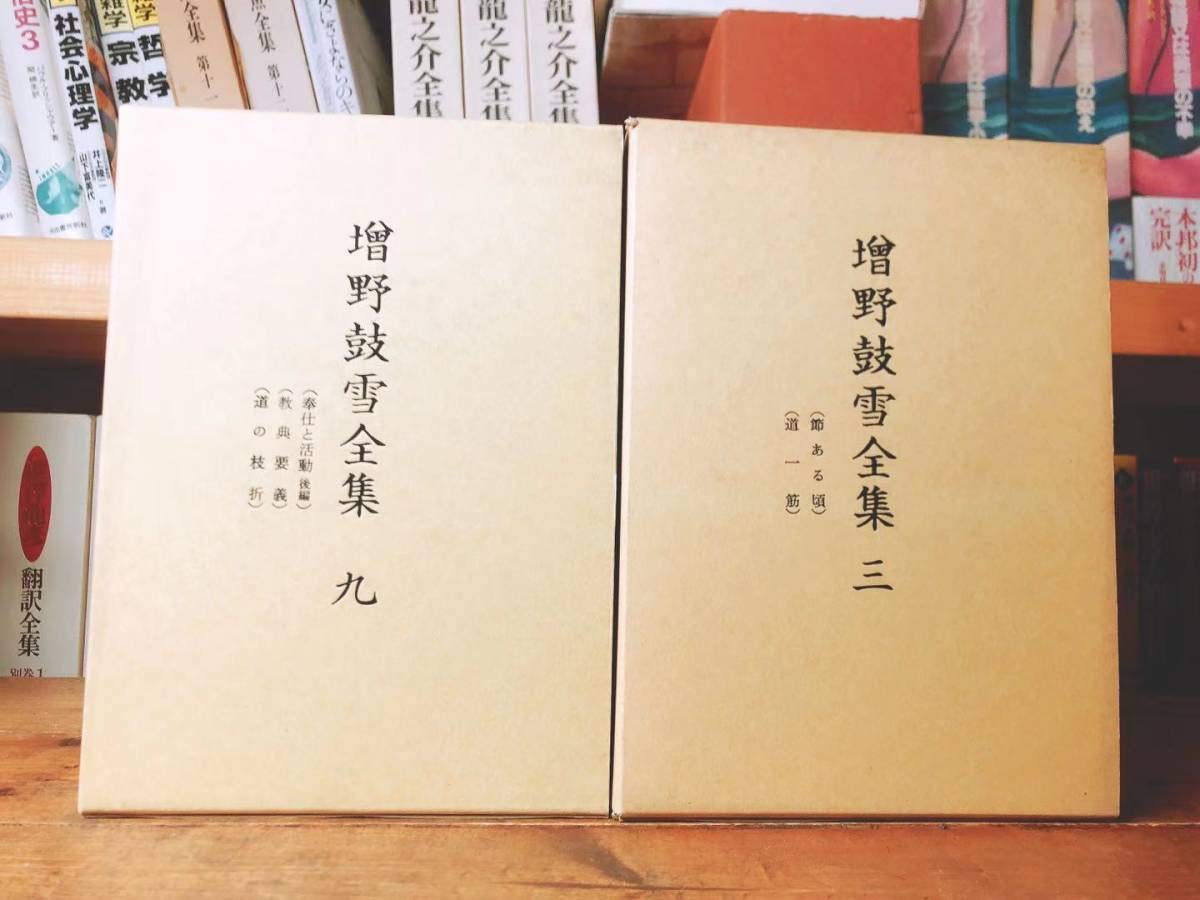 増野鼓雪全集 九
(奉仕と活動 後編)
(教典要義)
(道の枝折)
増野鼓雪全集 三
(節ある頃)
(道一筋)
史3
社会心理学
井上隆二
山下富美代
著
雑学
宗教
哲学
全集 第十一
全集 第十二
龍之介全集
龍之介全集
龍之介全集
本邦初の
完訳
翻訳全集
別巻1